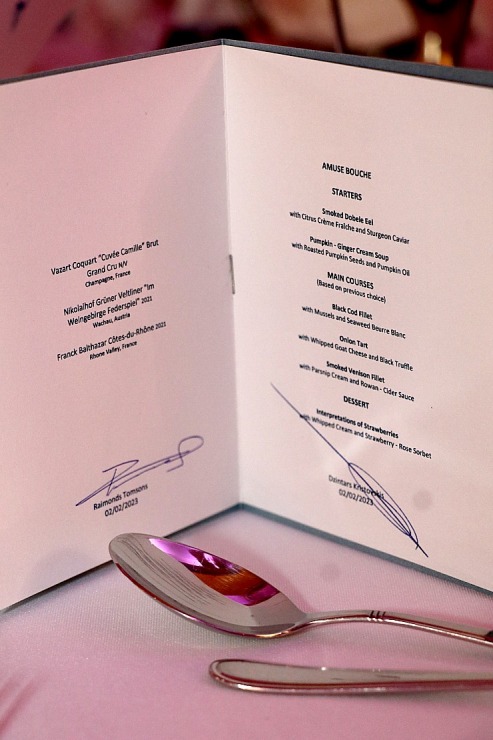 Vazart Coquart "Cuvée Camille" Brut
Grand Cru N/V
Champagne, France
Nikolaihof Grüner Veltliner "Im
Weingebirge Federspiel" 2021
Wachau, Austria
Franck Balthazar Côtes-du-Rhône 2021
Rhone Valley, France
Raimonds Tomsons
02/02/2023
AMUSE BOUCHE
STARTERS
Smoked Dobele Eel
with Citrus Crème Fraîche and Sturgeon Caviar
Pumpkin - Ginger Cream Soup
with Roasted Pumpkin Seeds and Pumpkin Oil
MAIN COURSES
(Based on previous choice)
Black Cod Fillet
with Mussels and Seaweed Beurre Blanc
Onion Tart
with Whipped Goat Cheese and Black Truffle
Smoked Venison Fillet
with Parsnip Cream and Rowan - Cider Sauce
DESSERT
Interpretations of Strawberries
with Whipped Cream and Strawberry - Rose Sorbet
Dzintars Kristovskis
02/02/2023